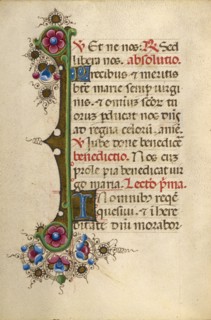 ℣ Et ne nos. ℟ Sed
libera nos. absolutio.
Precibus et meritis
bte marie semp virgi
nis. et omniū scōr tr
orus pducat nos dn̄s
ad regna celorū. amē.
℣ Jube done benedicē
benedictio. Nos cū
prole pia benedicat vir
go maria. Lectō pma.
In omnibȝ reqē
quesiui. et i here
ditate dn̄i morabor